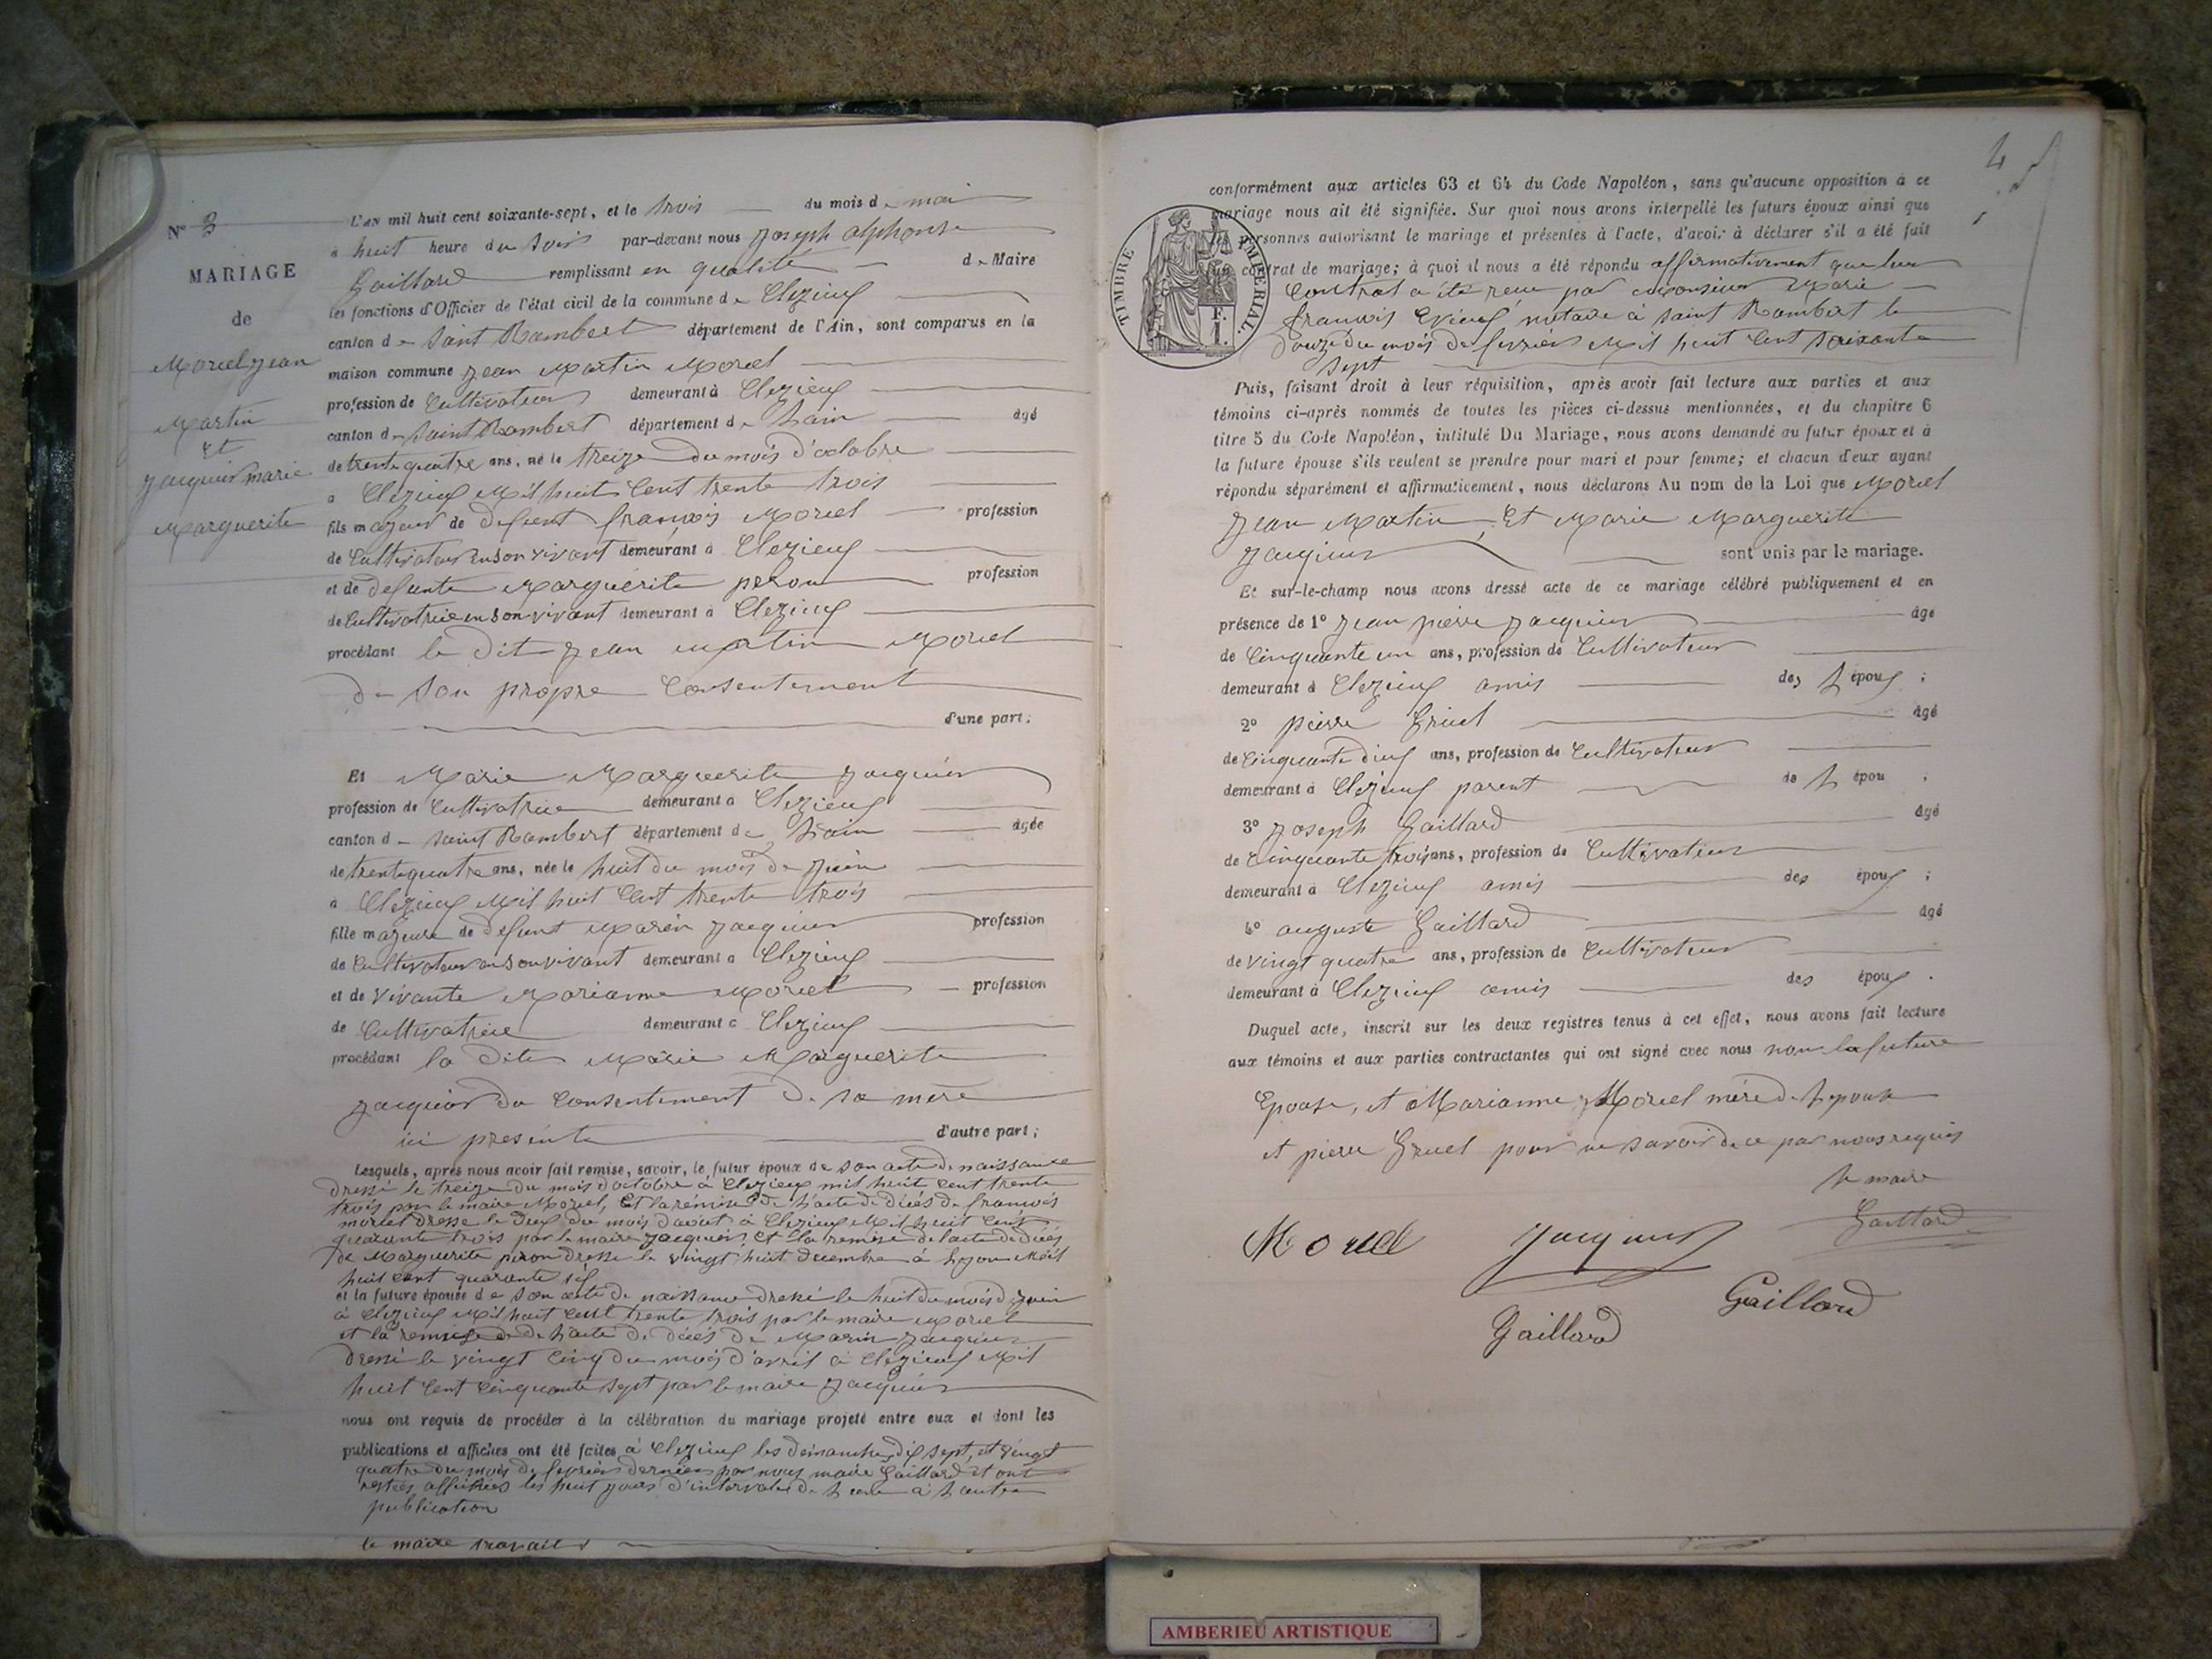 N° 3
MARIAGE
de
Morel Jean
Martin
Et
Jacquier marie
Marguerite
L'AN mil huit cent soixante-sept, et le trois du mois de mai
à huit heure du soir par-devant nous Joseph alphonse
Gaillard remplissant en qualité de Maire
les fonctions d'Officier de l'état civil de la commune de Clezieux
canton de Saint Rambert département de l'Ain, sont comparus en la
maison commune Jean Martin Morel
profession de Cultivateur demeurant à Clezieux
canton de Saint Rambert département de Lain âgé
de trente quatre ans, né le treize du mois d'octobre
à Clezieux Mil huit Cent trente trois
fils majeur de defunt françois Morel profession
de Cultivateur en son vivant demeurant à Clezieux
et de defunte Marguerite peron profession
de Cultivatrice en son vivant demeurant à Clezieux
procédant le dit Jean Martin Morel
de son propre Consentement
d'une part;
Et Marie Marguerite Jacquier
profession de Cultivatrice demeurant à Clezieux
canton de Saint Rambert département de Lain âgée
de trente quatre ans, née le huit du mois de Juin
à Clezieux Mil huit Cent trente trois
fille majeure de defunt Marin Jacquier profession
de Cultivateur en son vivant demeurant à Clezieux
et de vivante Marianne Morel profession
de Cultivatrice demeurant à Clezieux
procédant la dite Marie Marguerite
Jacquier du Consentement de sa mère
ici présente d'autre part;
Lesquels, après nous avoir fait remise, savoir, le futur époux de son acte de naissance
dressé le treize du mois d'octobre à Clezieux mil huit cent trente
trois par le maire Morel, Et la remise de l'acte de décés de françois
morel dresse le deux du mois d'aout à Clezieux Mil huit Cent
quarante trois par le maire Jacquier, et la remise de l'acte de décés
de Marguerite peron dresse le vingt huit decembre à Lyon Mil
huit cent quarante six
et la future épouse de son acte de naissance dressé le huit du mois de Juin
à Clezieux Mil huit Cent trente trois par le maire Morel
et la remise de l'acte de décés de Marin Jacquier
dressé le vingt cinq du mois d'avril à Clezieux Mil
huit Cent Cinquante sept par le maire Jacquier
nous ont requis de procéder à la célébration du mariage projeté entre eux et dont les
publications et affiches ont été faites à Clezieux les dimanches dix sept, et vingt
quatre du mois de fevrier dernier par nous maire Gaillard et ont
restées affichées les huit jours d'intervale de l'une à l'autre
publication
le maire
4
conformément aux articles 63 et 64 du Code Napoléon, sans qu'aucune opposition à ce
mariage nous ait été signifiée. Sur quoi nous avons interpellé les futurs époux ainsi que
les personnes autorisant le mariage et présentes à l'acte, d'avoir à déclarer s'il a été fait
un contrat de mariage; à quoi il nous a été répondu affirmativement que leur
Contrat a été reçu par Monsieur Marie
françois notaire à Saint Rambert le
douze du mois de fevrier Mil huit Cent Soixante
sept
TIMBRE IMPÉRIAL.
1 F.
Puis, faisant droit à leur réquisition, après avoir fait lecture aux parties et aux
témoins ci-après nommés de toutes les pièces ci-dessus mentionnées, et du chapitre 6
titre 5 du Code Napoléon, intitulé Du Mariage, nous avons demandé au futur époux et à
la future épouse s'ils veulent se prendre pour mari et pour femme; et chacun d'eux ayant
répondu séparément et affirmativement, nous déclarons Au nom de la Loi que Morel
Jean Martin, Et Marie Marguerite
Jacquier sont unis par le mariage.
Et sur-le-champ nous avons dressé acte de ce mariage célébré publiquement et en
présence de 1° Jean pierre Jacquier âgé
de Cinquante un ans, profession de Cultivateur
demeurant à Clezieux amis des époux;
2° pierre Gruel âgé
de Cinquante dix ans, profession de Cultivateur
demeurant à Clezieux parent de l'épou;
3° Joseph Gaillard âgé
de Cinquante trois ans, profession de Cultivateur
demeurant à Clezieux amis des époux;
4° auguste Gaillard âgé
de vingt quatre ans, profession de Cultivateur
demeurant à Clezieux amis des époux.
Duquel acte, inscrit sur les deux registres tenus à cet effet, nous avons fait lecture
aux témoins et aux parties contractantes qui ont signé avec nous non la future
Epouse, et Marianne Morel mère de l'epouse
et pierre Gruel pour ne savoir de ce par nous requis
le maire
Gaillard
Morel Jacquier
Gaillard Gaillard
AMBERIEU ARTISTIQUE